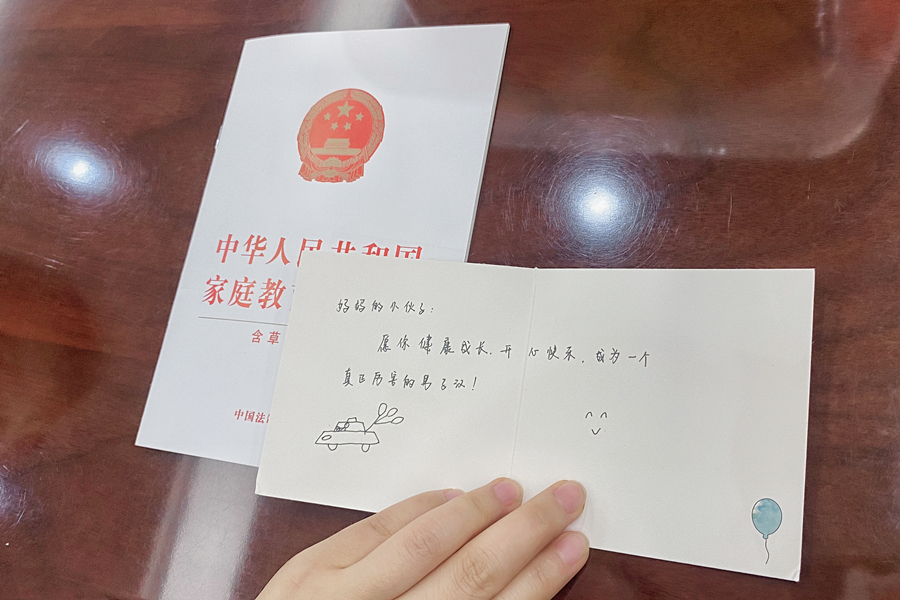 中华人民共和国
家庭教
含草
中国法
妈妈的小伙子:
愿你健康成长、开心快乐,成为一个
真正厉害的男子汉!